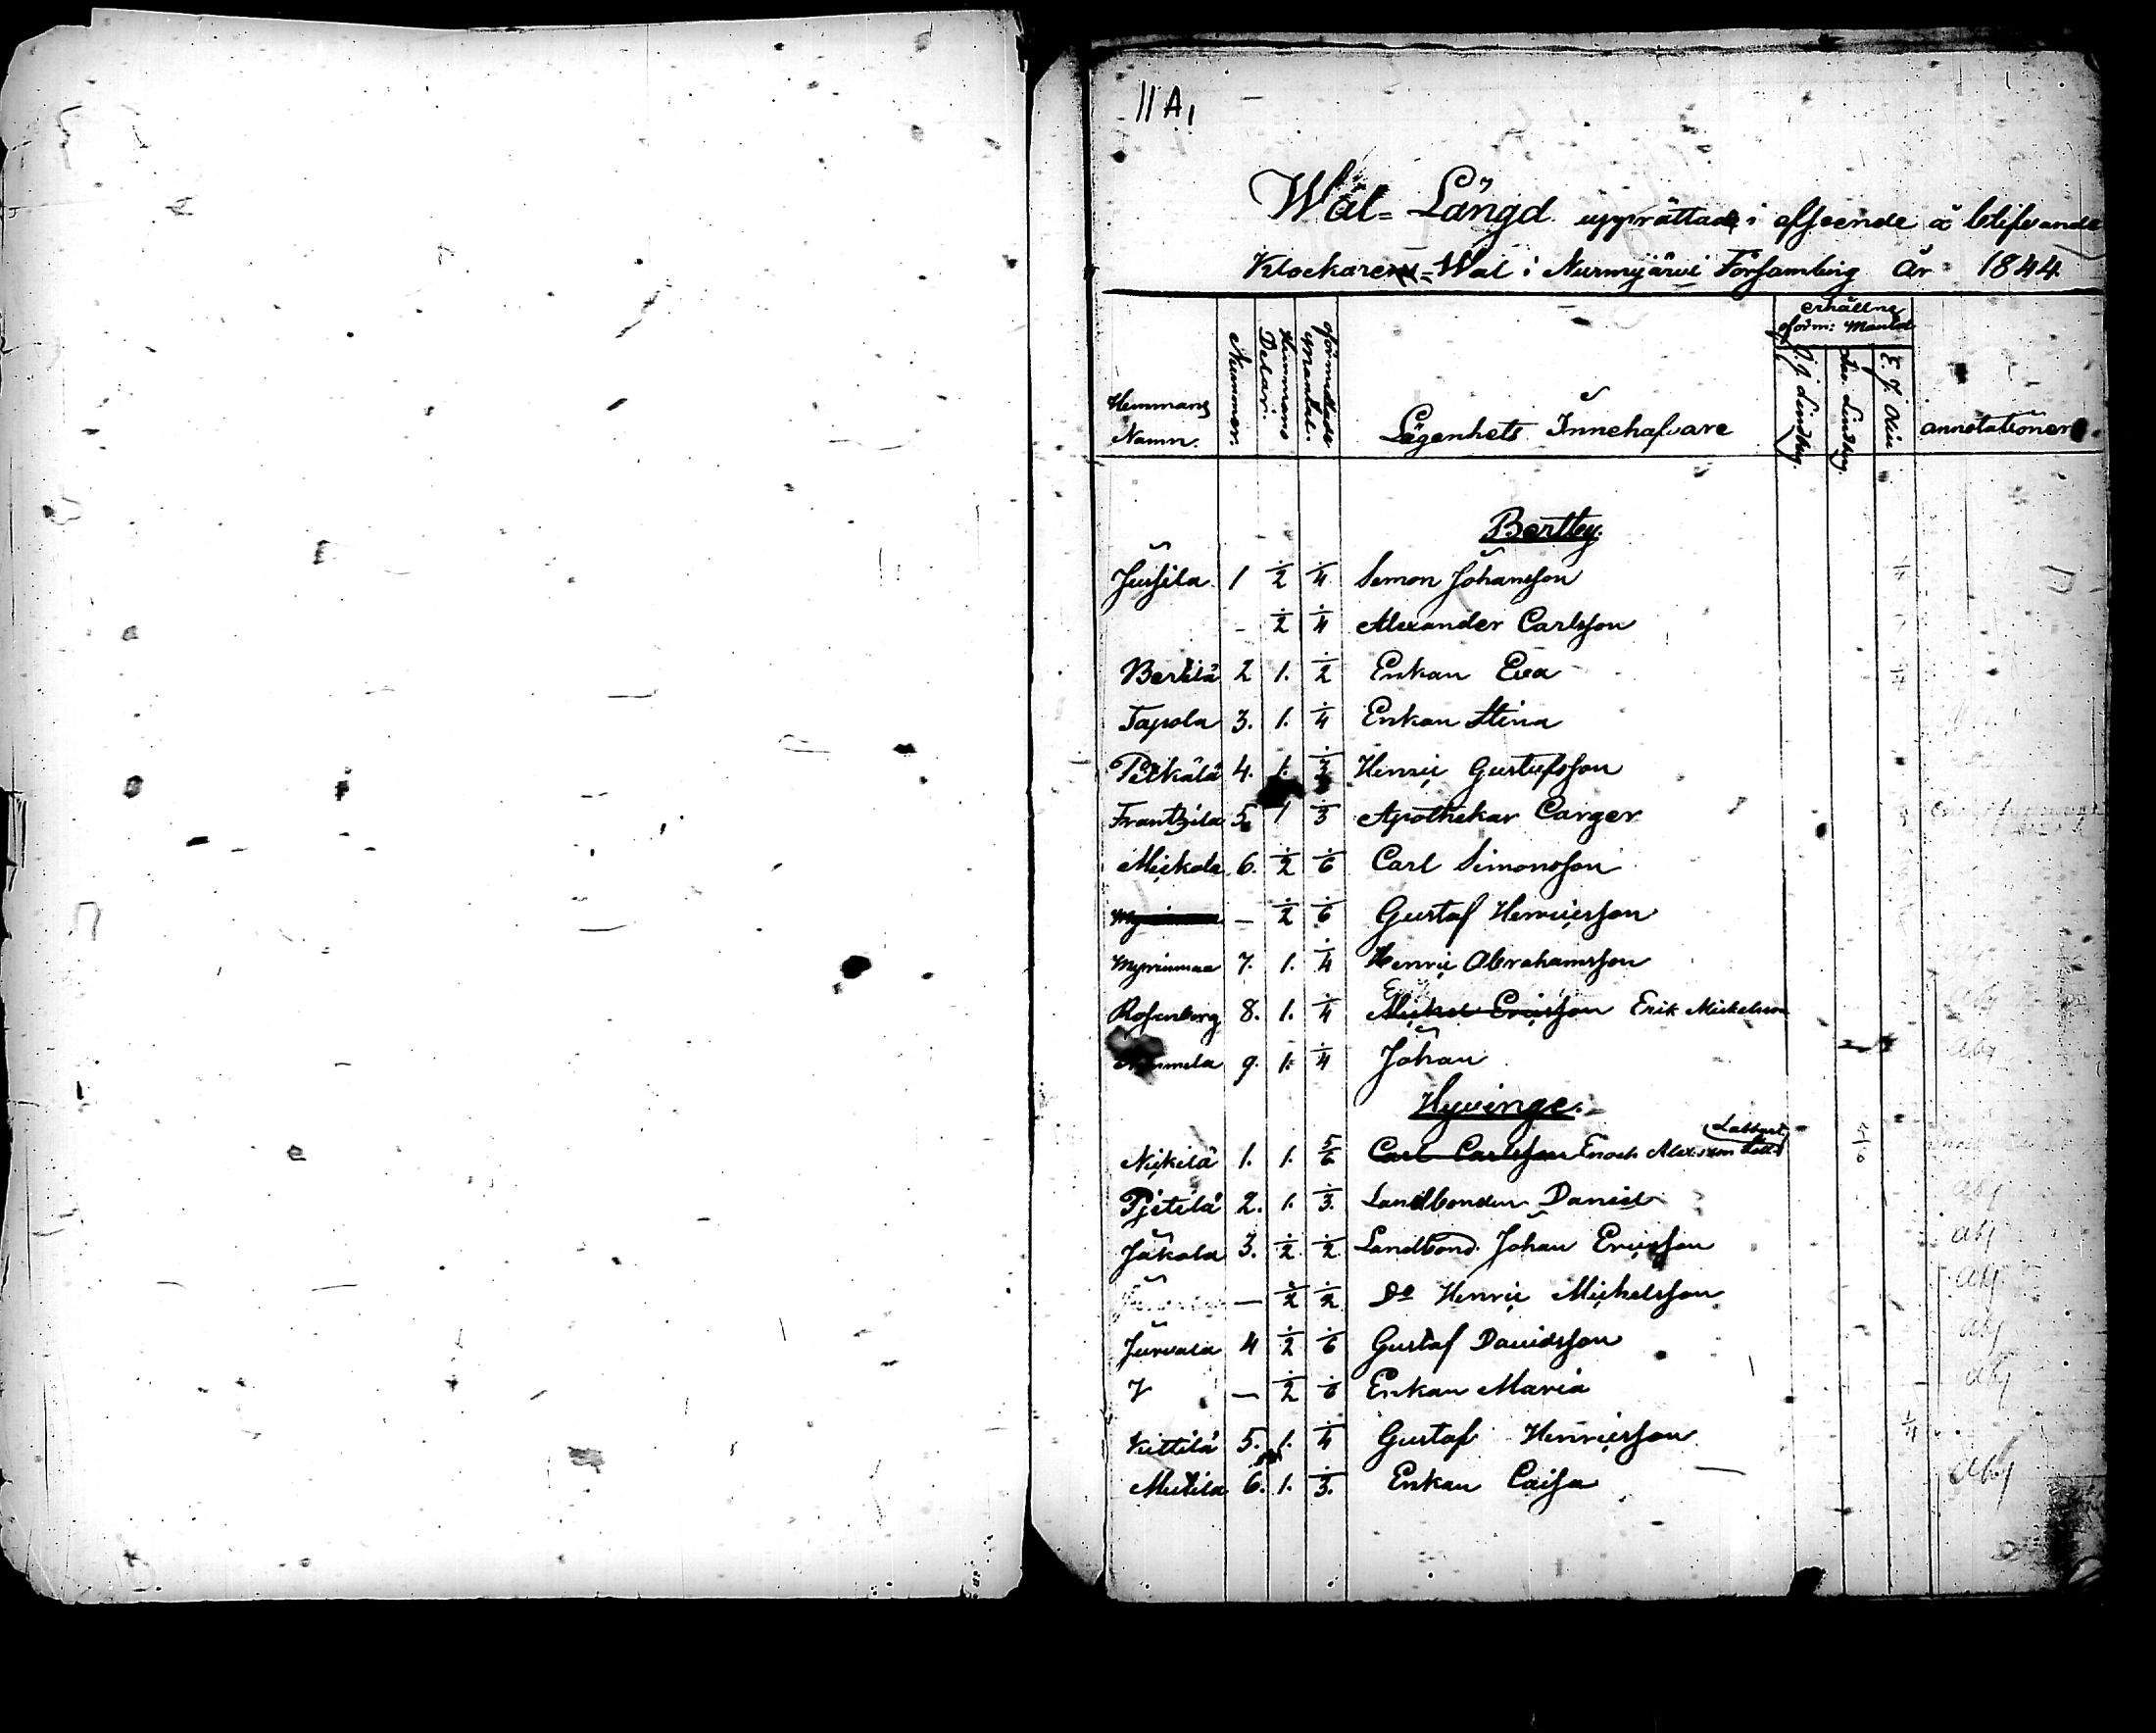 11 A,
Wal= Längd upprättade i afseende å blifvande
Klockarens=Wal i Nurmijärvi Församling År 1844
Hemmans Namn. Nummer. Hemmans Delar. oförmedlade Mantal. Lägenhets Innehafvare erhållne oförm: Mantal J. J. Lindberg. Lindberg. E. J. annotationer
Bertby.
Jussila 1 1/2 1/4 Simon Johansson 1/4
- 1/2 1/4 Alexander Carlsson
Bertilä 2 1. 1/2 Enkan Eva
Tapola 3. 1. 1/4 Enkan Stina
Pelkälä 4. 1. Henric Gustafsson
Frantzila 5 1 1/3 Apothekar Carger
Mickola 6. 1/2 1/6 Carl Simonsson
— 1/2 1/6 Gustaf Henricsson
Myrinmaa 7. 1. 1/4 Henric Abrahamsson
Rosenborg 8. 1. 1/4 Mickel Ericsson Erik Mickelsson abj
9. 1. 1/4 Johan abj
Hyvinge.
Nickilä 1. 1. 5/6 Carl Carlsson Enoch
Pjetilä 2. 1. 1/3. Landbonden Daniel abj
Jäkola 3. 1/2 1/2 Landbond. Johan Ericsson abj
— 1/2 1/2 Do Henric Mickelsson abj
Jurvala 4 1/2 1/6 Gustaf Davidsson abj
— 1/2 1/6 Enkan Maria abj
Kittilä 5. 1. 1/4 Gustaf Henricsson 1/4
Mutila 6. 1. 1/3. Enkan Caisa abj